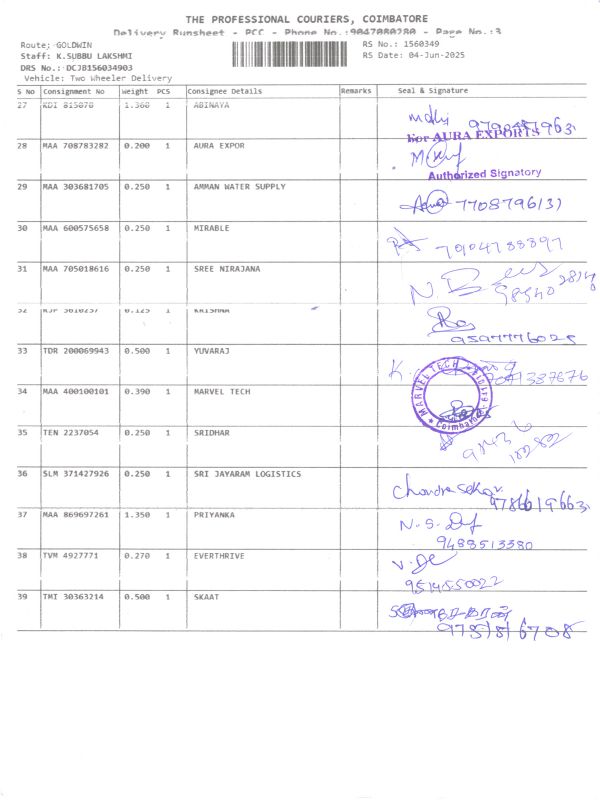 THE PROFESSIONAL COURIERS, COIMBATORE
Delivery Runsheet - PCC - Phone No.:9047080280 - Page No.:3
Route: GOLDWIN
RS No.: 1560349
Staff: K.SUBBU LAKSHMI
RS Date: 04-Jun-2025
DRS No.: DCJB156034903
Vehicle: Two Wheeler Delivery
S No Consignment No Weight PCS Consignee Details Remarks Seal & Signature
27 KDI 815070 1.360 1 ABINAYA
For AURA EXPORTS
28 MAA 708783282 0.200 1 AURA EXPOR
Authorized Signatory
29 MAA 303681705 0.250 1 AMMAN WATER SUPPLY
30 MAA 600575658 0.250 1 MIRABLE
7904788897
31 MAA 705018616 0.250 1 SREE NIRAJANA
32 KJP 0.125 1 KRISHNA
9597776025
33 TDR 200069943 0.500 1 YUVARAJ
34 MAA 400100101 0.390 1 MARVEL TECH
MARVEL TECH Coimbatore
35 TEN 2237054 0.250 1 SRIDHAR
36 SLM 371427926 0.250 1 SRI JAYARAM LOGISTICS
37 MAA 869697261 1.350 1 PRIYANKA
9488513380
38 TVM 4927771 0.270 1 EVERTHRIVE
9514550022
39 TMI 30363214 0.500 1 SKAAT